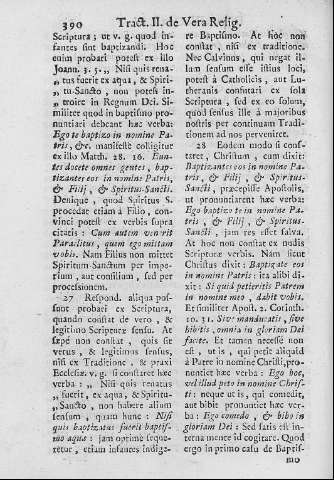 390 Tract. II. de Vera Relig.
Scriptura; ut v. g. quod in-
fantes sint baptizandi. Hoc
enim probari potest ex illo
Joann. 3. 5. „ Nisi quis rena-
„ tus fuerit ex aqua, & Spiri-
„ tu-Sancto, non potest in-
„ troire in Regnum Dei. Si-
militer quod in baptismo pro-
nuntiari debeant hæc verba:
Ego te baptizo in nomine Pa-
tris, &c. manifestè colligitur
ex illo Matth. 28. 16. Eun-
tes docete omnes gentes, bap-
tizantes eos in nomine Patris,
& Filij, & Spiritus-Sancti.
Denique, quod Spiritus S.
procedat etiam à Filio, con-
vinci potest ex verbis supra
citatis: Cum autem venerit
Paraclitus, quem ego mittam
vobis. Nam Filius non mittet
Spiritum-Sanctum per impe-
rium, aut consilium, sed per
processionem.
27 Respond. aliqua pos-
sunt probari ex Scriptura,
quando constat de vero, &
legitimo Scripturæ sensu. At
sæpe non constat, quis sit
verus, & legitimus sensus,
nisi ex Traditione, & praxi
Ecclesiæ. v. g. si constaret hæc
verba: „ Nisi quis renatus
„ fuerit, ex aqua, & Spiritu-
„ Sancto, non habere alium
sensum, quam hunc: Nisi
quis baptizatus fuerit baptis-
mo aquæ: jam optimè seque-
retur, etiam infantes indige-
re Baptismo. At hoc non
constat, nisi ex traditione.
Nec Calvinus, qui negat il-
lum sensum esse istius loci,
potest à Catholicis, aut Lu-
theranis confutari ex sola
Scriptura, sed ex eo solum,
quod sensus ille à majoribus
nostris per continuam Traditi-
onem ad nos pervenerit.
28 Eodem modo si cons-
taret, Christum, cum dixit:
Baptizantes eos in nomine Pa-
tris, & Filij, & Spiritus-
Sancti, præcepisse Apostolis,
ut pronuntiarent hæc verba:
Ego baptizo te in nomine Pa-
tris, & Filij, & Spiritus-
Sancti, jam res esset salva.
At hoc non constat ex nudis
Scripturæ verbis. Nam sicut
Christus dixit: Baptizate eos
in nomine Patris: ita alibi di-
xit: Si quid petieritis Patrem
in nomine meo, dabit vobis.
Et similiter Apost. 2. Corinth.
10. 31. Sive manducatis, sive
bibitis, omnia in gloriam Dei
facite. Et tamen necesse non
est, ut is, qui petit aliquid
à Patre in nomine Christi, pro-
nuntiet hæc verba: Ego hoc,
vel illud peto in nomine Chris-
ti: neque ut is, qui comedit,
aut bibit pronuntiet hæc ver-
ba: Ego comedo, & bibo in
gloriam Dei: Sed satis est in-
terna mente id cogitare. Quod
ergo in primo casu de Baptis-
mo